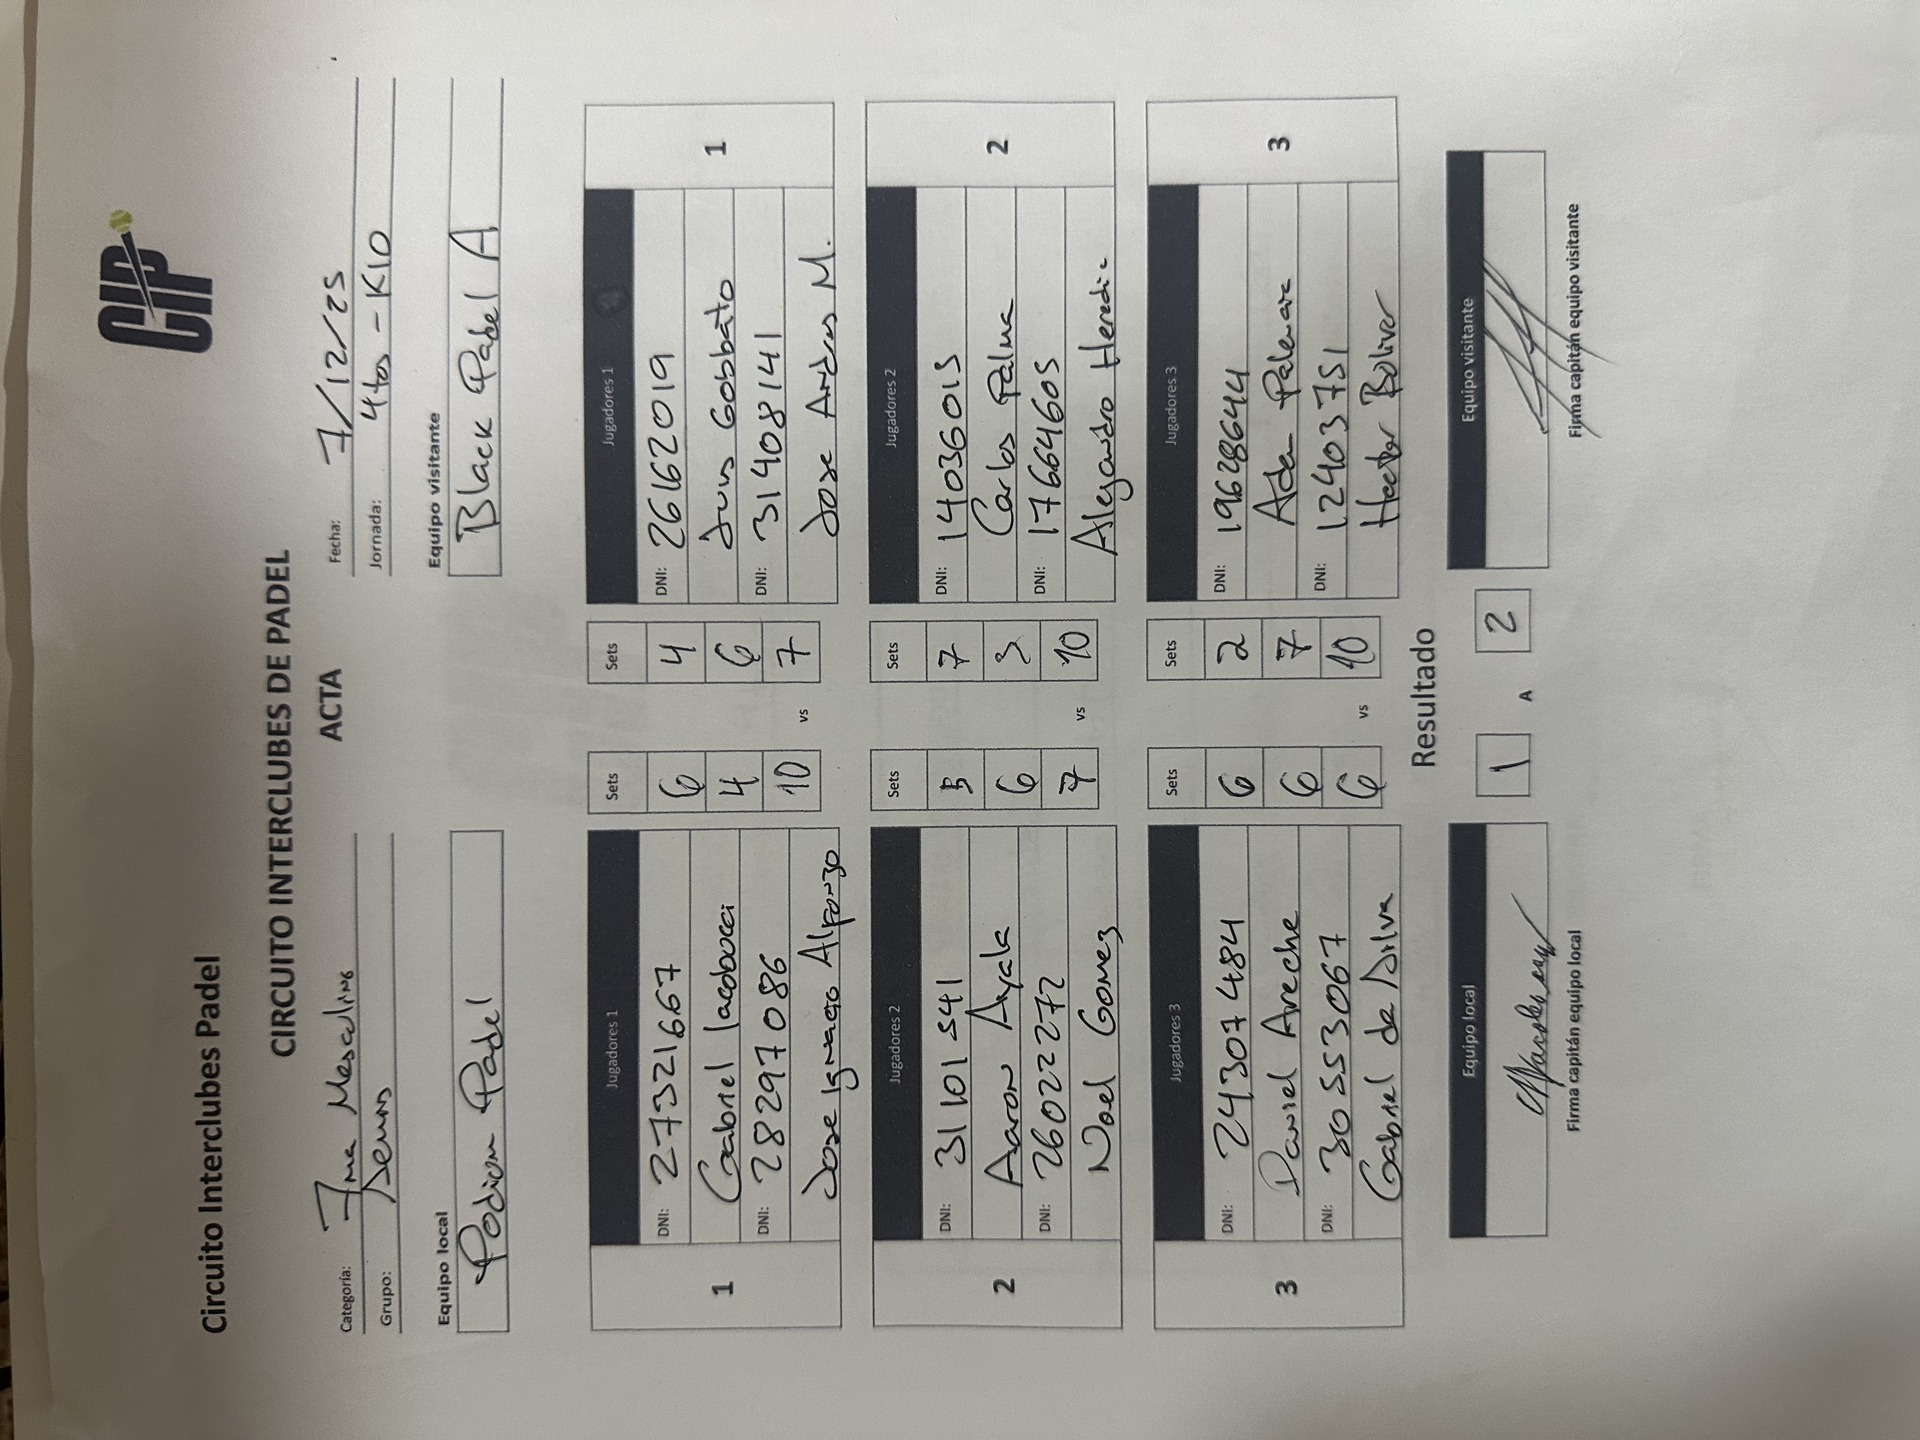 Circuito Interclubes Padel
CIP
CIRCUITO INTERCLUBES DE PADEL
ACTA
Categoría: 7ma Masculino
Fecha: 7/12/25
Grupo:
Jornada: 4tos - K10
Equipo local
Equipo visitante
Podium Padel
Black Padel A
1
Jugadores 1
Sets
Sets
Jugadores 1
1
DNI: 27321667
6
4
DNI: 26162019
Gabriel Iacobacci
4
6
Juan Gobbato
DNI: 28297086
10
vs
7
DNI: 31408141
Jose Ignacio Alfonzo
Jose Andres M.
2
Jugadores 2
Sets
Sets
Jugadores 2
2
DNI: 31101541
5
7
DNI: 14036015
Aaron Ayala
6
3
Carlos Palma
DNI: 26022272
7
vs
10
DNI: 17664605
Noel Gomez
Alejandro Heredia
3
Jugadores 3
Sets
Sets
Jugadores 3
3
DNI: 24307484
6
2
DNI: 19628644
Daniel Areche
6
7
Adan
DNI: 30553067
6
vs
10
DNI: 12403751
Gabriel da Silva
Hector Bolivar
Resultado
Equipo local
1
A
2
Equipo visitante
Firma capitán equipo local
Firma capitán equipo visitante